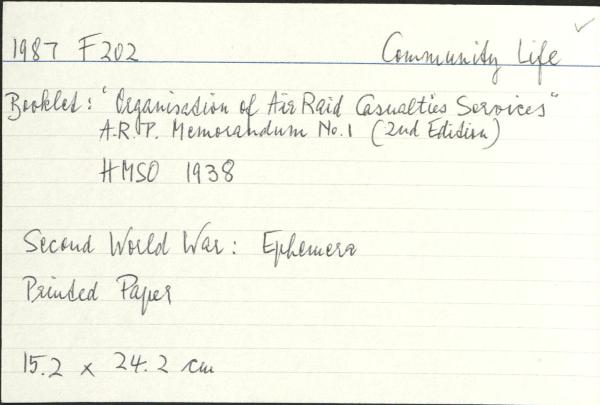 1987 F202 Community Life
Booklet: "Organisation of Air Raid Casualties Services"
A.R.P. Memorandum No.1 (2nd Edition)
HMSO 1938
Second World War: Ephemera
Printed Paper
15.2 x 24.2 cm